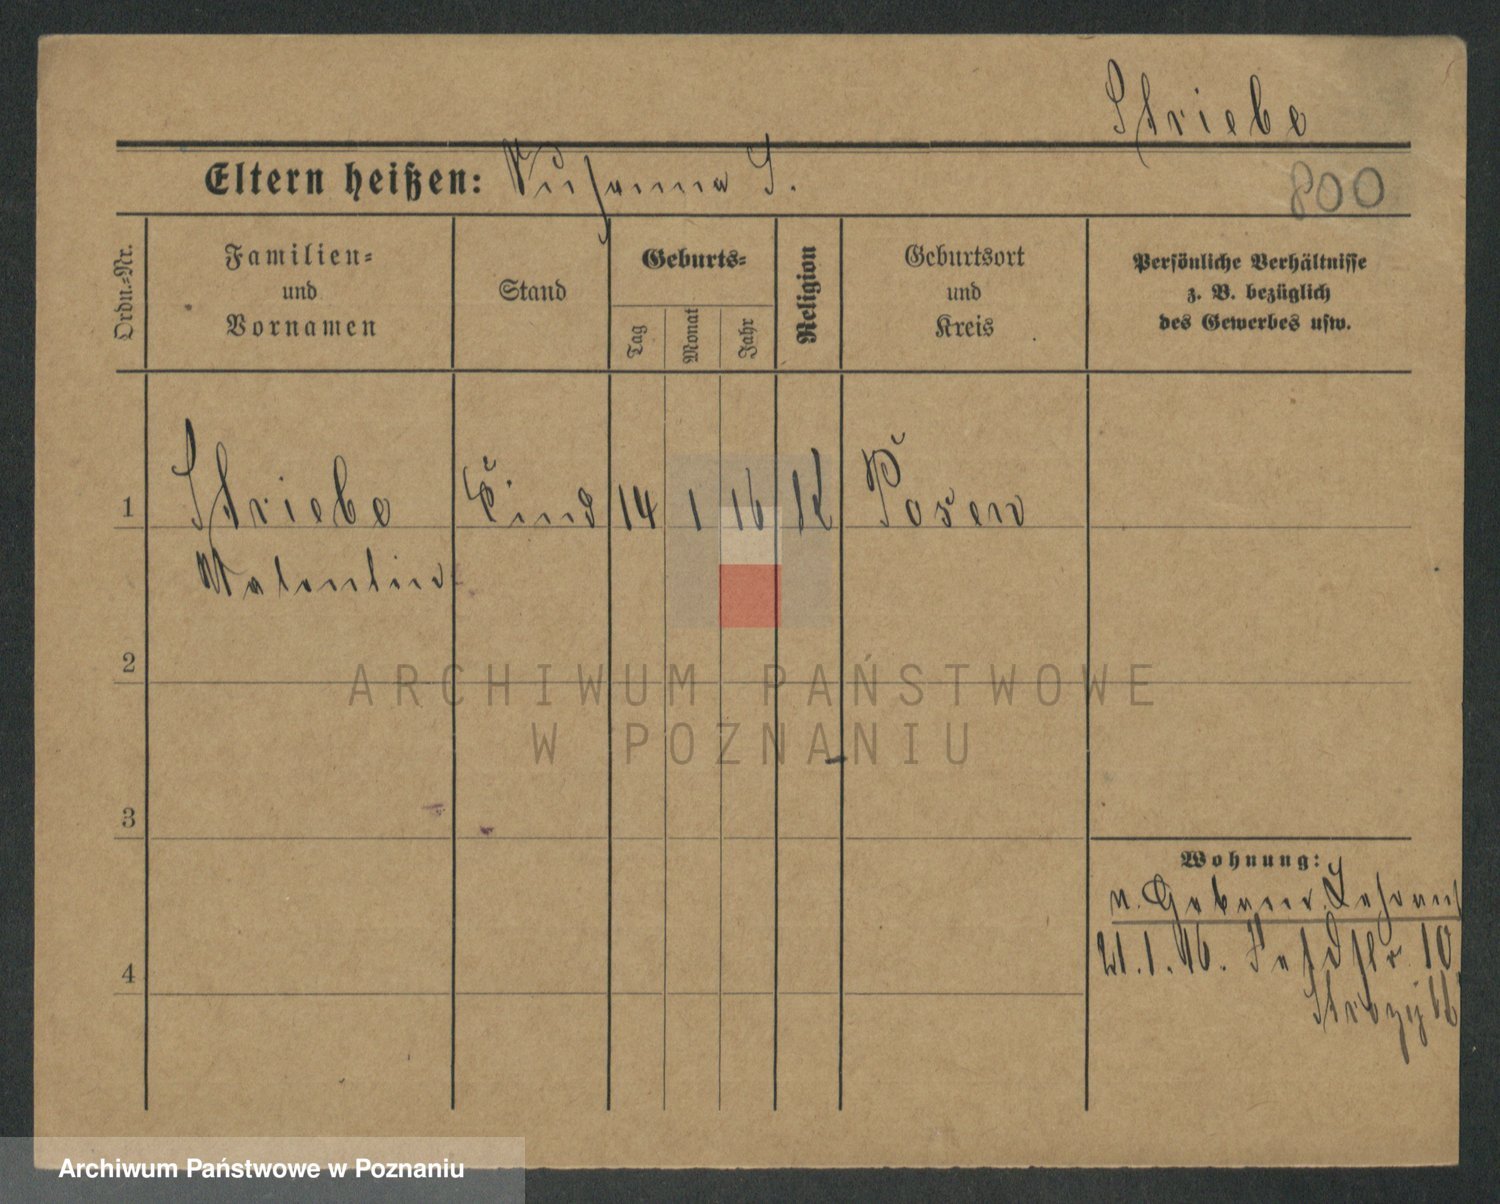 Striebe
Eltern heißen: Susanna S.
800
Ordn.=Nr.
Familien=
und
Vornamen
Stand
Geburts=
Tag
Monat
Jahr
Religion
Geburtsort
und
Kreis
Persönliche Verhältnisse
z. B. bezüglich
des Gewerbes usw.
1 Striebe Kind 14 1 16 k Posen
Valentin
2
3
4
Wohnung:
21. 1. 16. Feldstr 10
ARCHIWUM PAŃSTWOWE
W POZNANIU
Archiwum Państwowe w Poznaniu